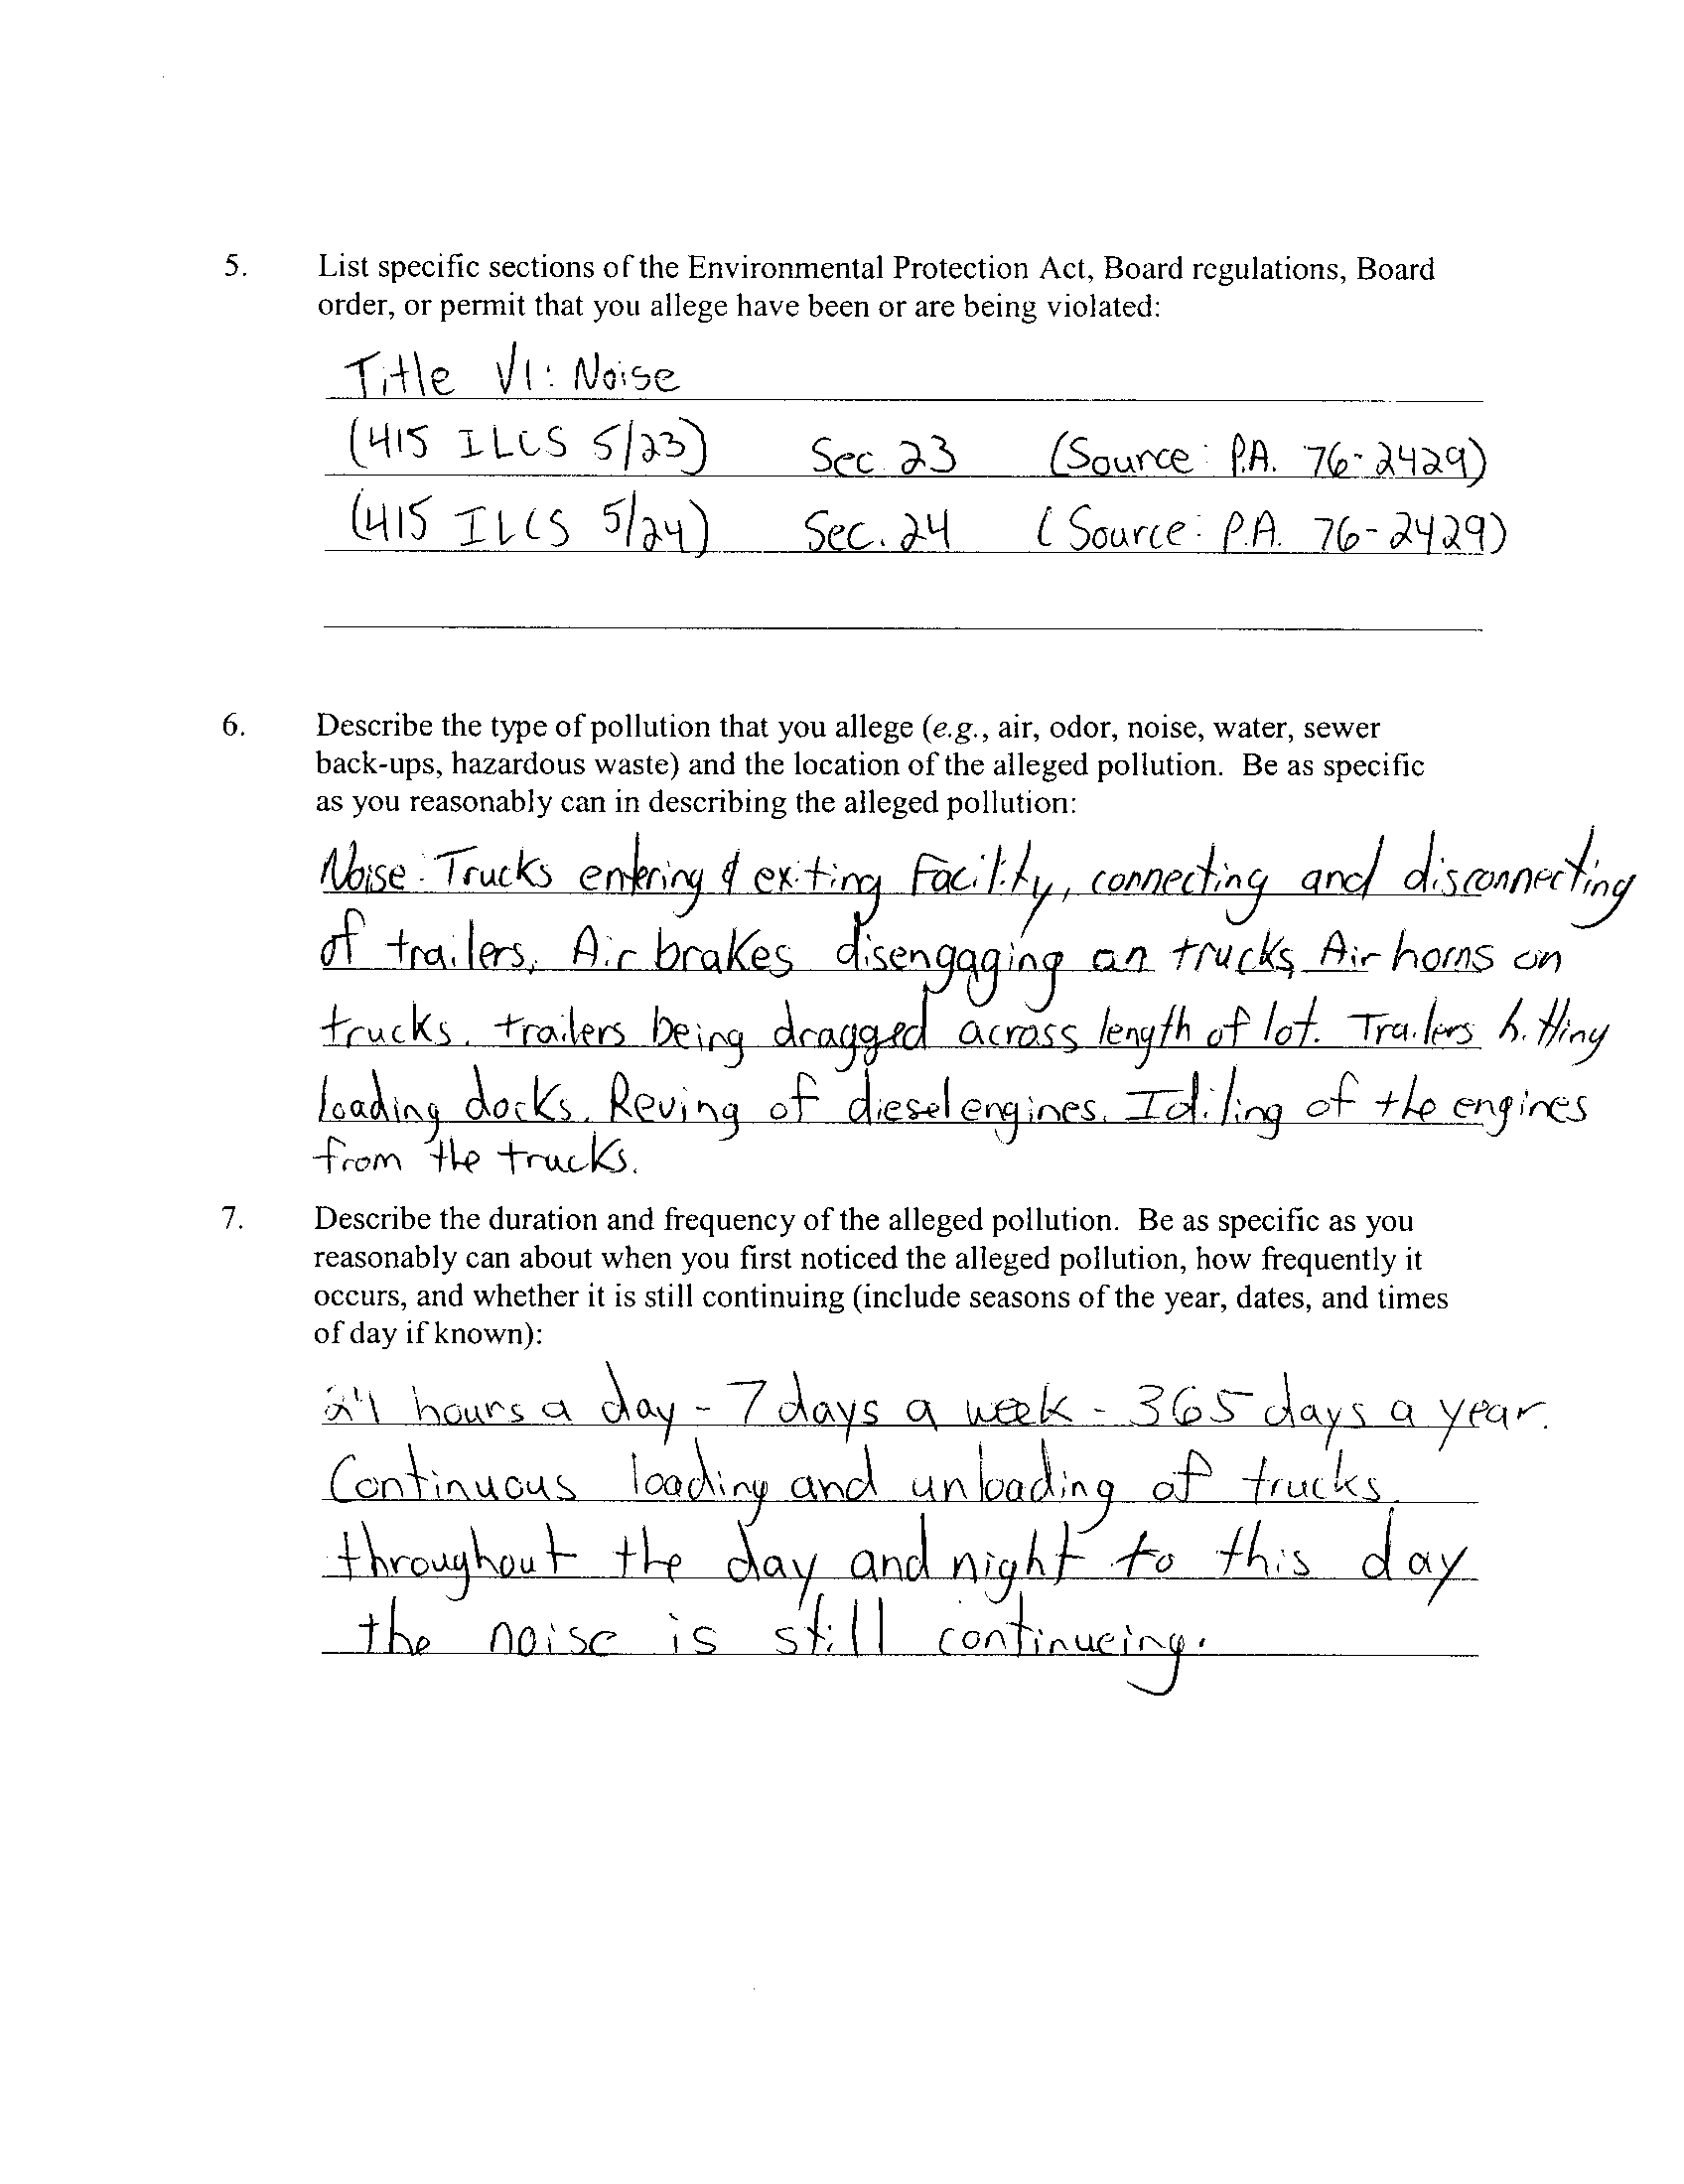 5. List specific sections of the Environmental Protection Act, Board regulations, Board
order, or permit that you allege have been or are being violated:
Title VI: Noise
(415 ILCS 5/23) Sec. 23 (Source: P.A. 76-2429)
(415 ILCS 5/24) Sec. 24 (Source: P.A. 76-2429)
6. Describe the type of pollution that you allege (e.g., air, odor, noise, water, sewer
back-ups, hazardous waste) and the location of the alleged pollution. Be as specific
as you reasonably can in describing the alleged pollution:
Noise: Trucks entering & exiting Facility, connecting and disconnecting
of trailers, Air brakes disengaging on trucks, Air horns on
trucks. trailers being dragged across length of lot. Trailers hitting
loading docks. Reving of diesel engines. Idiling of the engines
from the trucks.
7. Describe the duration and frequency of the alleged pollution. Be as specific as you
reasonably can about when you first noticed the alleged pollution, how frequently it
occurs, and whether it is still continuing (include seasons of the year, dates, and times
of day if known):
24 hours a day - 7 days a week - 365 days a year.
Continuous loading and unloading of trucks
throughout the day and night to this day
the noise is still continueing.